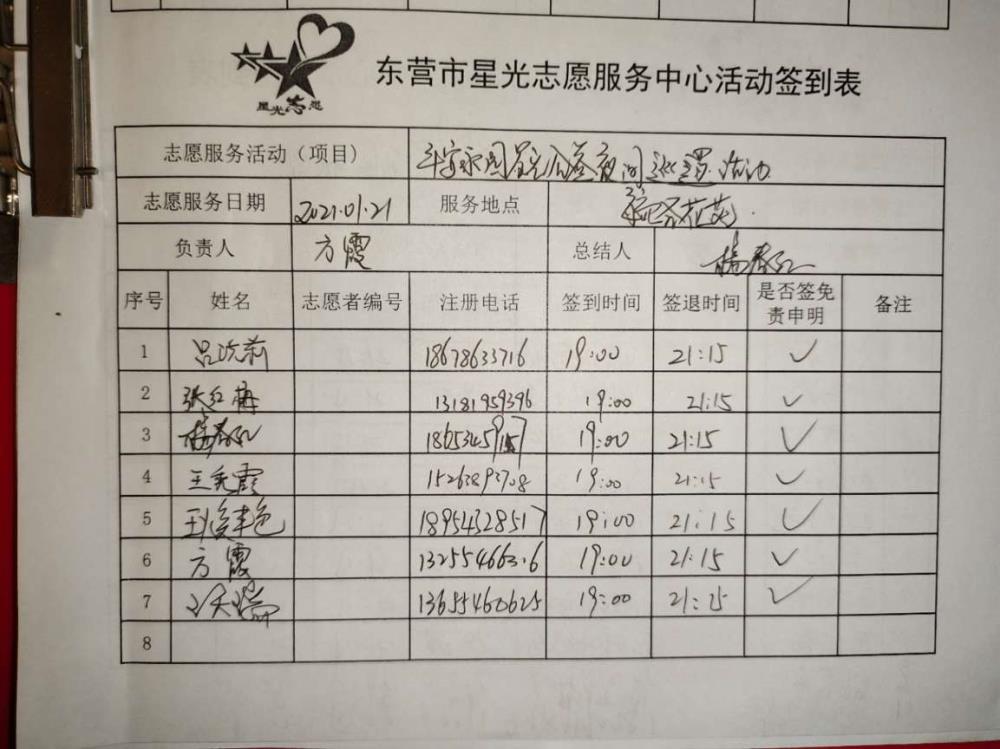 星光志愿
东营市星光志愿服务中心活动签到表
志愿服务活动（项目） 平安家园星光公益夜间巡逻活动
志愿服务日期 2021.01.21 服务地点
负责人 方霞 总结人 杨春红
序号 姓名 志愿者编号 注册电话 签到时间 签退时间 是否签免责申明 备注
1 18678633716 19:00 21:15 ✓
2 张红梅 13181959396 19:00 21:15 ✓
3 杨春红 19:00 21:15 ✓
4 15263893708 19:00 21:15 ✓
5 18954328517 19:00 21:15 ✓
6 方霞 13255466306 19:00 21:15 ✓
7 13655460625 19:00 21:15 ✓
8